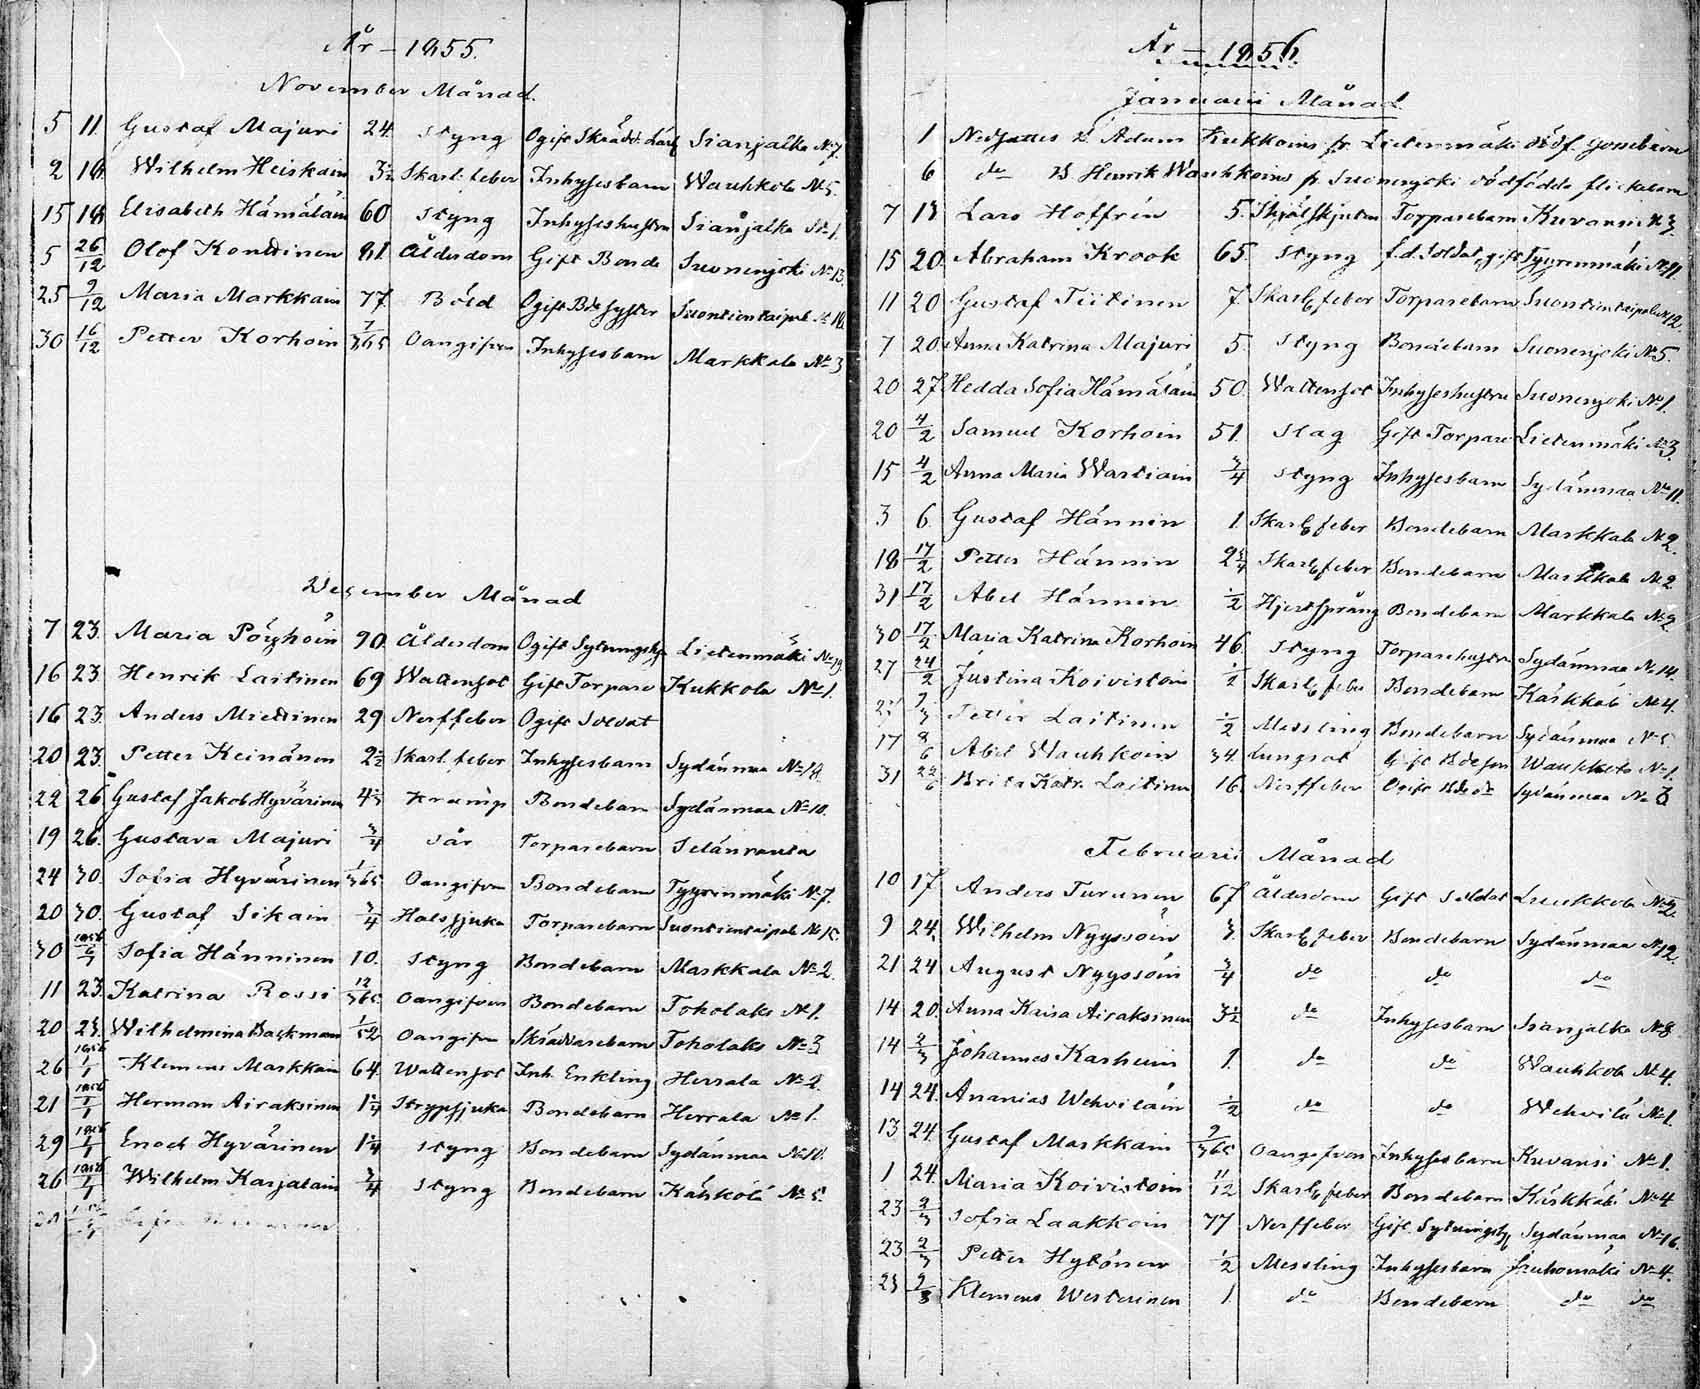 År - 1855.
November Månad.
5 11. Gustaf Majuri 24. Styng Ogift Skrädd. Lärl. Sianjalka № 7.
2 18. Wilhelm Heiskain 3½ Skarl. feber Inhysesbarn Wauhkola № 5.
15 18 Elisabeth Hämäläin 60 Styng Inhyseshustru Sianjalka № 1.
5 26/12 Olof Konttinen 81. Ålderdom Gift Bonde Suonenjoki № 13.
25 9/12 Maria Markkain 77 Böld Ogift Bde syster Suontientaipal №
30 16/12 Petter Korhoin 7/365 Oangifven Inhysesbarn Markkala № 3
December Månad
7 23. Maria Pöyhöin 90. Ålderdom Ogift Sytningshj. Lietenmäki № 19.
16 23 Henrik Laitinen 69 Wattensot Gift Torpare Kukkola № 1.
16 23. Anders Miettinen 29 Nerffeber Ogift Soldat
20 23. Petter Keinänen 2½ Skarl. feber Inhysesbarn Sydänmaa №
22 26 Gustaf Jakob Hyvärinen Kramp Bondebarn Sydänmaa № 10.
19 26. Gustava Majuri 3/4 Sår Torparebarn Selänranta
24 30. Sofia Hyvärinen 1/365 Oangifven Bondebarn Tyyrinmäki № 7.
20 30. Gustaf Sikain 3/4 Halssjuka Torparebarn Suontientaipal №
30 1856 6/1 Sofia Hänninen 10. Styng Bondebarn Markkala № 2
11 23. Katrina Rossi 12/365 Oangifven Bondebarn Toholaks № 1.
20 23. Wilhelmina Backman 1/52 Oangifven Skräddarebarn Toholaks № 3
26 1856 1/1 Klemens Markkain 64. Wattensot Inh. Enkling Herrala № 2.
21 1856 1/1 Herman Airaksinen 1¼ Strypsjuka Bondebarn Herrala № 1.
29 1856 1/1 Enoch Hyvärinen 1¼ Styng Bondebarn Sydänmaa № 10.
26 1856 1/1 Wilhelm Karjalain 3/4 Styng Bondebarn Kärkkälä № 5.
År - 1856.
Januarii Månad
1 Nedsattes Adam Kukkoins fr. Lietenmäki dödf. gossebarn
6 do Henrik Wauhkoins fr Suonenjoki dödfödda flickebarn
7 13 Lars Hoffrén 5. Torparebarn Kuvansi № 3.
15 20. Abraham Krook 65. Styng f.d. Soldat, gift Tyyrinmäki № 11.
11 20 Gustaf Tiitinen 7. Skarl. feber Torparebarn Suontientaipal № 12.
7 20 Anna Katrina Majuri 5. Styng Bondebarn Suonenjoki № 5.
20 27 Hedda Sofia Hämäläin 50. Wattensot Inhyseshustru Suonenjoki № 1.
20 4/2 Samuel Korhoin 51. Slag Gift Torpare Lietenmäki № 3.
15 4/2 Anna Maria Wartiain 3/4 Styng Inhysesbarn Sydänmaa № 11.
3 6. Gustaf Hännin 1 Skarl. feber Bondebarn Markkala № 2.
18 17/2 Petter Hännin 2¾ Skarl. feber Bondebarn Markkala № 2
31 17/2 Abel Hännin ½ Hjertsprång Bondebarn Markkala № 2
30 17/2 Maria Katrina Korhoin 46. Styng Torparehustru Sydänmaa № 14.
27 24/2 Justina Koivistoin ½ Skarl. feber Bondebarn Kärkkälä № 4.
Petter Laitinen ½ Messling Bondebarn Sydänmaa №
17 8/6 Abel Wauhkoin 34. Lungsot Gift Bdeson Wauhkola № 1.
31 22/6 Brita Katr. Laitinen 16. Nerffeber Ogift Bdedr Sydänmaa № 8
Februarii Månad
10 17. Anders Turunen 67 Ålderdom Gift Soldat Luukkola № 2.
9 24. Wilhelm Nyyssöin 3. Skarl. feber Bondebarn Sydänmaa № 12.
21 24 August Nyyssöin 3/4 do do do
14 20. Anna Kaisa Airaksinen 3½ do Inhysesbarn Sianjalka № 8.
14 2/3 Johannes Karhuin 1. do do Wauhkola № 4.
14 24. Ananias Wehviläin ½ do do Wehvilä № 1.
13 24. Gustaf Markkain 9/365 Oangifven Inhysesbarn Kuvansi № 1.
1 24. Maria Koivistoin 11/12 Skarl. feber Bondebarn Kärkkälä № 4
23 2/3 Sofia Laakkoin 77 Nerffeber Gift. Sytningshj. Sydänmaa № 16.
23 2/3 Petter Hytönen ½ Messling Inhysesbarn № 4.
23 2/3 Klemens Westerinen 1. do Bondebarn do do